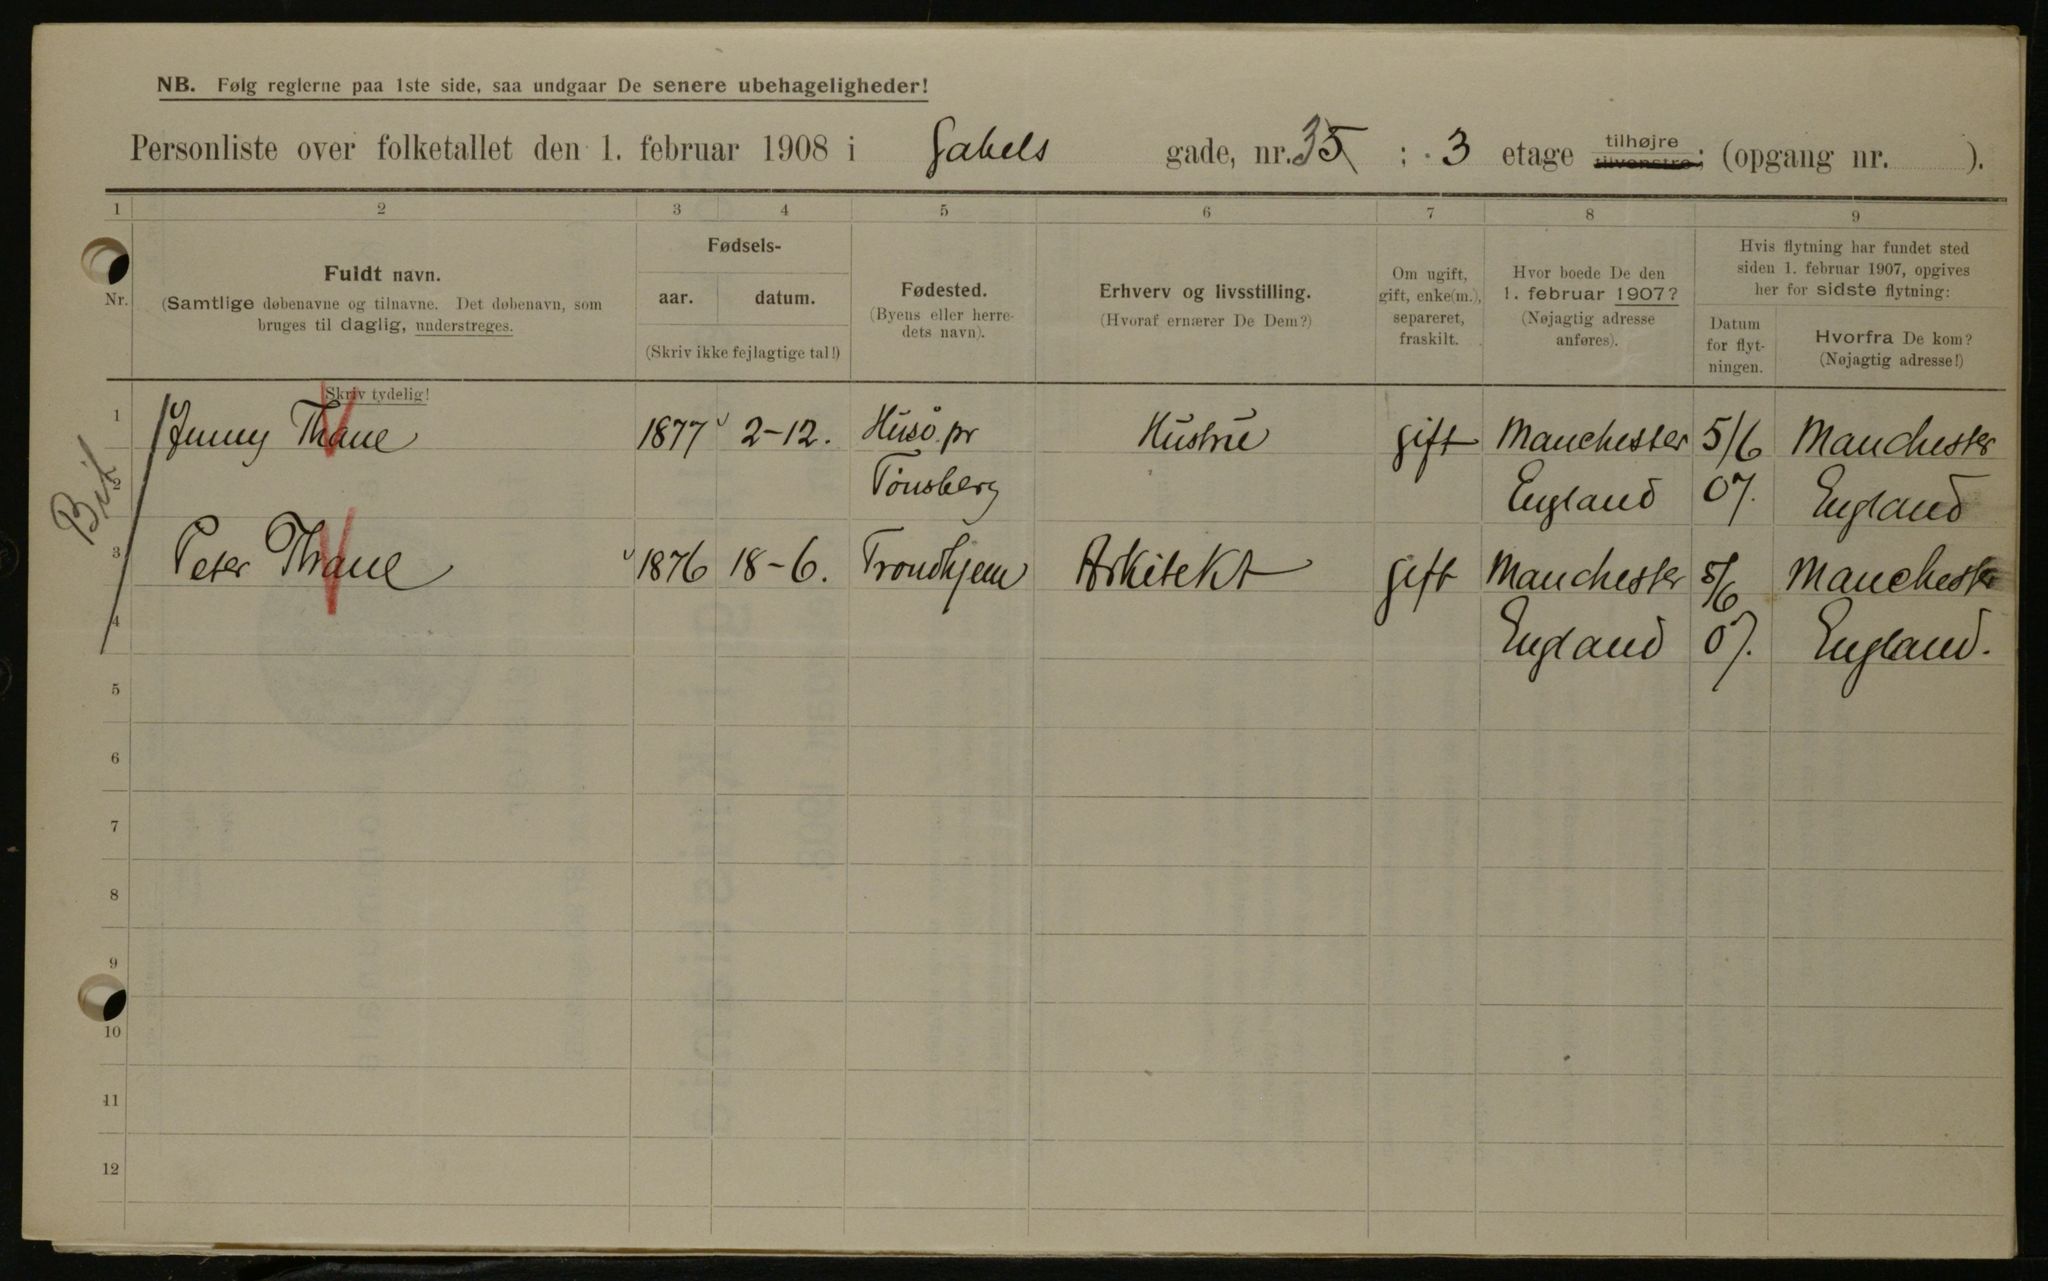 NB. Følg reglerne paa 1ste side, saa undgaar De senere ubehageligheder!
Personliste over folketallet den 1. februar 1908 i Gabels gade, nr. 35 ; 3 etage tilhøjre tilvenstre; (opgang nr. ).
1 2 3 4 5 6 7 8 9
Nr.
Fuldt navn.
(Samtlige døbenavne og tilnavne. Det døbenavn, som
bruges til daglig, understreges.
Skriv tydelig!
Fødsels-
aar. datum.
(Skriv ikke fejlagtige tal!)
Fødested.
(Byens eller herre-
dets navn).
Erhverv og livsstilling.
(Hvoraf ernærer De Dem?)
Om ugift,
gift, enke(m.),
separeret,
fraskilt.
Hvor boede De den
1. februar 1907?
(Nøjagtig adresse
anføres).
Hvis flytning har fundet sted
siden 1. februar 1907, opgives
her for sidste flytning:
Datum
for flyt-
ningen.
Hvorfra De kom?
(Nøjagtig adresse!)
1 Jenny Thane 1877 2-12. Husö pr Hustru gift Manchester 5/6 Manchester
2 Tönsberg England 07. England
3 Peter Thane 1876 18-6. Trondhjem Arkitekt gift Manchester 5/6 Manchester
4 England 07. England.
5
6
7
8
9
10
11
12